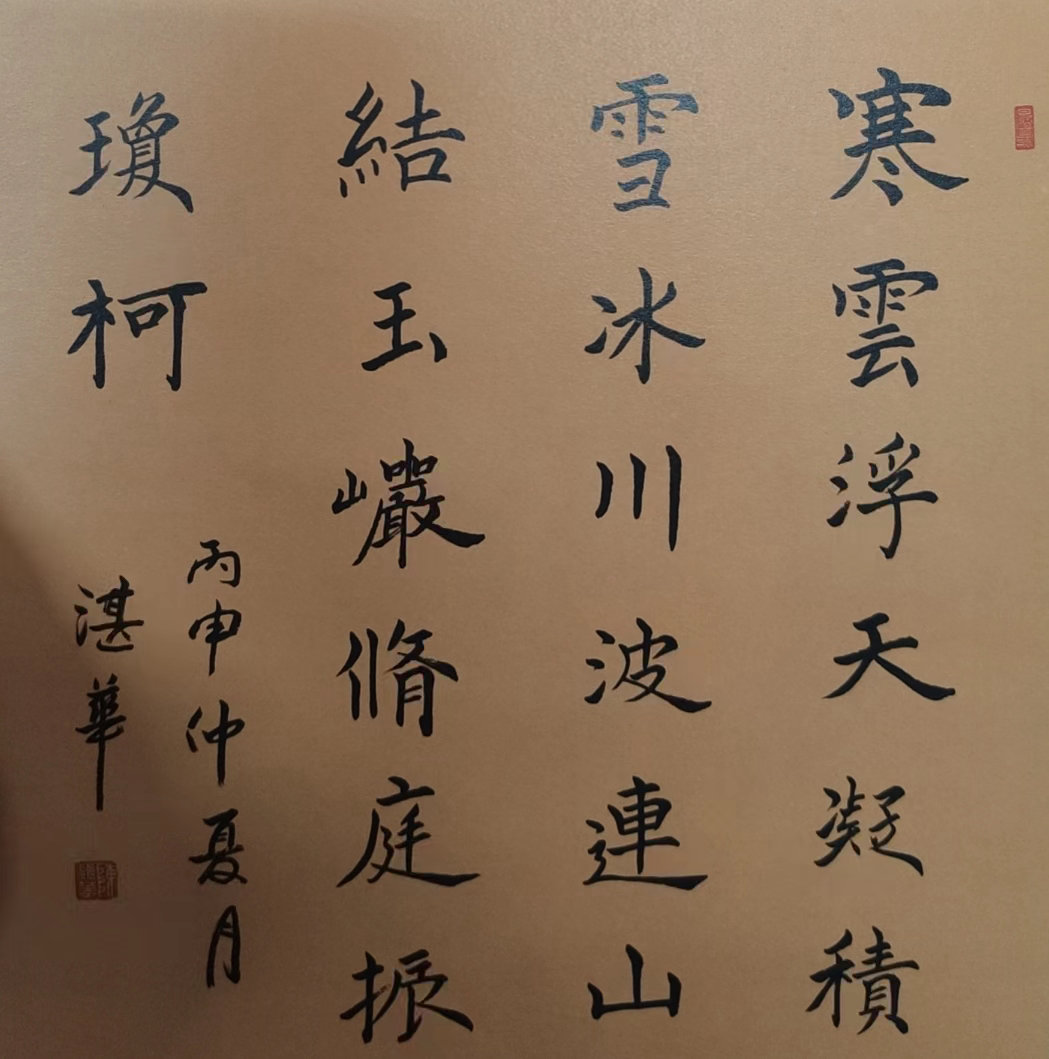 寒雲浮天凝積
雪冰川波連山
結玉巗脩庭振
瓊柯
丙申仲夏月
湛華